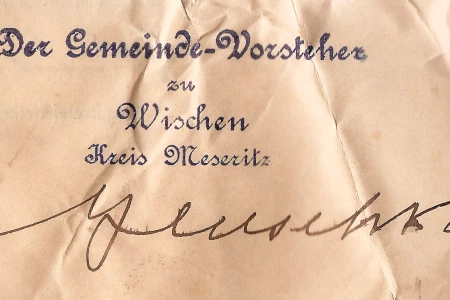 Der Gemeinde-Vorsteher
zu
Wischen
Kreis Meseritz